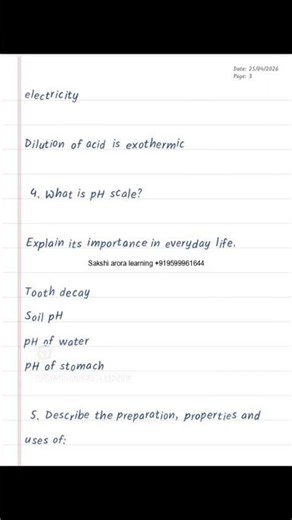 Date: 21/04/2026
Page: 3
electricity
Dilution of acid is exothermic
4. What is pH scale?
Explain its importance in everyday life.
Sakshi arora learning +919599961644
Tooth decay
Soil pH
pH of water
pH of stomach
5. Describe the preparation, properties and
uses of: